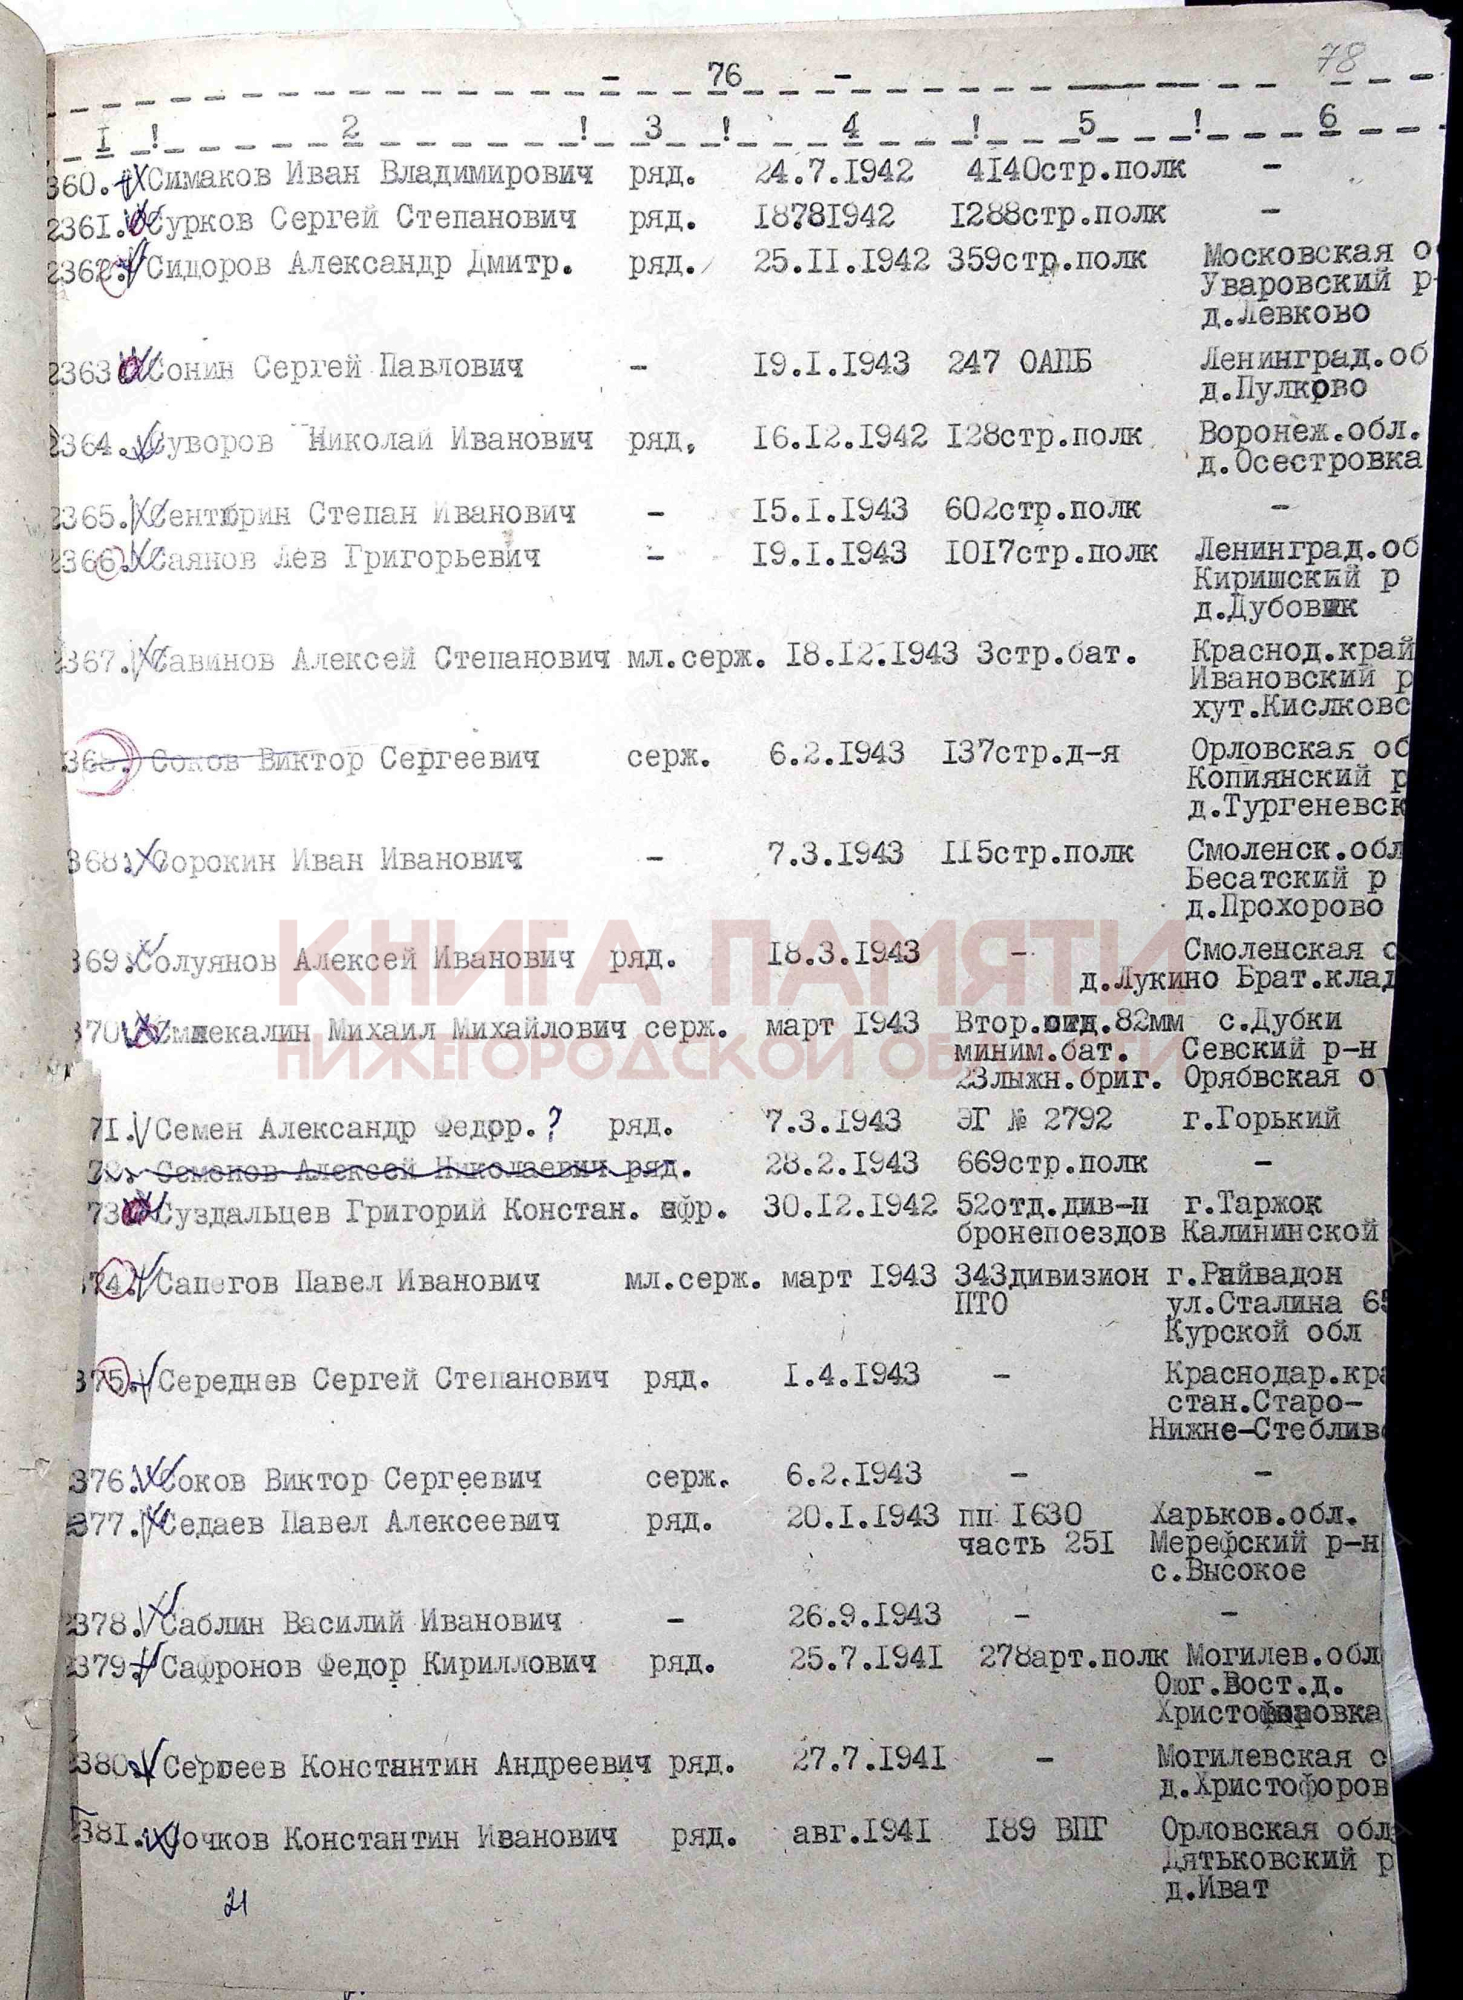 78
- 76 -
I ! 2 ! 3 ! 4 ! 5 ! 6
360. Симаков Иван Владимирович ряд. 24.7.I942 4I40стр.полк -
2361. Сурков Сергей Степанович ряд. I878I942 I288стр.полк -
2362. Сидоров Александр Дмитр. ряд. 25.II.I942 359стр.полк Московская о
Уваровский р-
д.Левково
2363 Сонин Сергей Павлович - I9.I.I943 247 ОАПБ Ленинград.об
д.Пулково
2364. Суворов Николай Иванович ряд. I6.I2.I942 I28стр.полк Воронеж.обл.
д.Осестровка
2365. Сентюрин Степан Иванович - I5.I.I943 602стр.полк -
2366. Саянов Лев Григорьевич - I9.I.I943 I0I7стр.полк Ленинград.об
Киришский р
д.Дубовик
2367. Савинов Алексей Степанович мл.серж. I8.I2.I943 3стр.бат. Краснод.край
Ивановский р
хут.Кислковс
368. Соков Виктор Сергеевич серж. 6.2.I943 I37стр.д-я Орловская об
Копиянский р
д.Тургеневск
368. Сорокин Иван Иванович - 7.3.I943 II5стр.полк Смоленск.обл
Бесатский р
д.Прохорово
369. Солуянов Алексей Иванович ряд. I8.3.I943 - Смоленская о
д.Лукино Брат.клад
КНИГА ПАМЯТИ
370 Смлекалин Михаил Михайлович серж. март I943 Втор.отд.82мм с.Дубки
миним.бат. Севский р-н
23лыжн.бриг. Орябвская о
НИЖЕГОРОДСКОЙ ОБЛАСТИ
7I. Семен Александр Федор.? ряд. 7.3.I943 ЭГ № 2792 г.Горький
72. Семенов Алексей Николаевич ряд. 28.2.I943 669стр.полк -
73 Суздальцев Григорий Констан. ефр. 30.I2.I942 52отд.див-н г.Таржок
бронепоездов Калининской
374. Сапегов Павел Иванович мл.серж. март I943 343дивизион г.Райвадон
ПТО ул.Сталина 65
Курской обл
375. Середнев Сергей Степанович ряд. I.4.I943 - Краснодар.кра
стан.Старо-
Нижне-Стебливс
376. Соков Виктор Сергеевич серж. 6.2.I943 - -
2377. Седаев Павел Алексеевич ряд. 20.I.I943 пп I630 Харьков.обл.
часть 25I Мерефский р-н
с.Высокое
2378. Саблин Василий Иванович - 26.9.I943 - -
2379. Сафронов Федор Кириллович ряд. 25.7.I94I 278арт.полк Могилев.обл
Оюг.Вост.д.
Христофоровка
2380. Сергеев Константин Андреевич ряд. 27.7.I94I - Могилевская о
д.Христофоров
2381. Сочков Константин Иванович ряд. авг.I94I I89 ВПГ Орловская обл
Дятьковский р
д.Иват
21